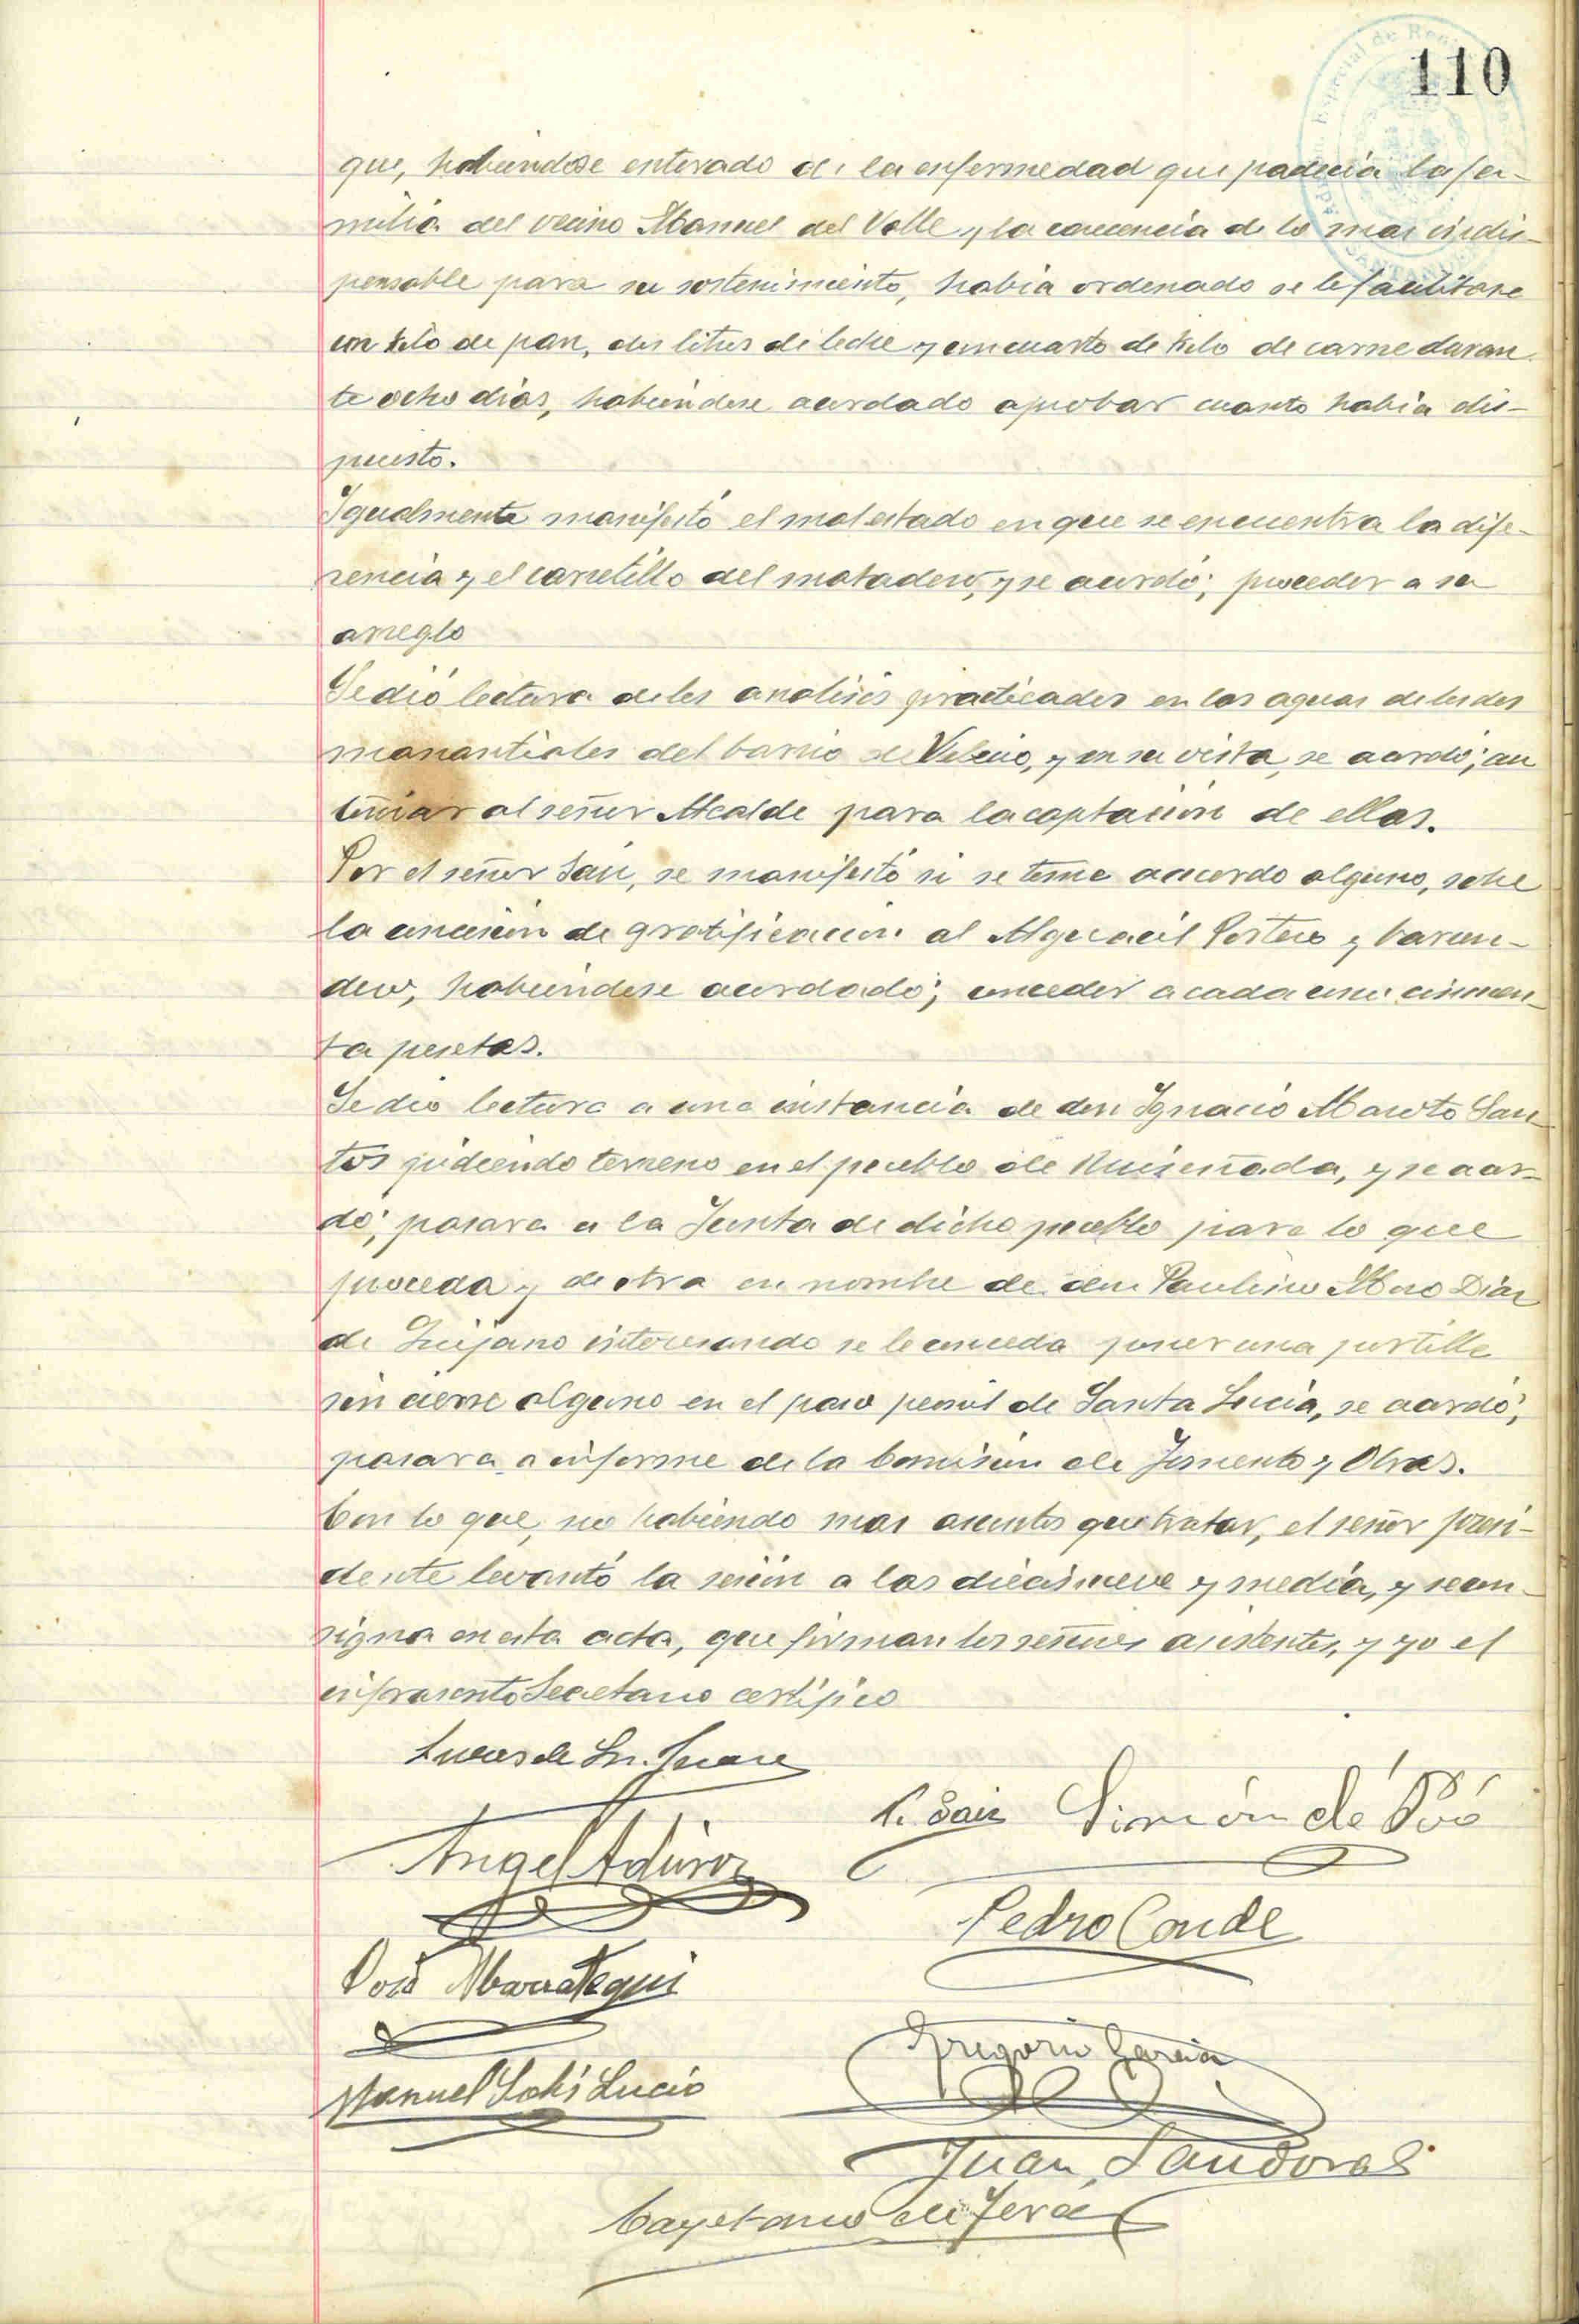 110
que, habiendose enterado de la enfermedad que padecia la fa-
milia del vecino Manuel del Valle y la carencia de lo mas indis-
pensable para su sostenimiento, habia ordenado se le facilitase
un kilo de pan, dos litros de leche y un cuarto de kilo de carne duran
te ocho dias, habiendose acordado aprobar cuanto habia dis-
puesto.
Igualmente manifestó el mal estado en que se encuentra la dife-
rencia y el carretillo del matadero, y se acordó; proceder a su
arreglo
Se dió lectura de los analisis practicados en las aguas de los dos
manantiales del barrio de Velecio, y en su vista, se acordó; au
torizar al señor Alcalde para la captacion de ellas.
Por el señor Saiz, se manifestó si se tomo acuerdo alguno, sobre
la concesion de gratificacion al Alguacil Portero y barren-
dero, habiendose acordado; conceder a cada uno cincuen-
ta pesetas.
Se dio lectura a una instancia de don Ignacio Maroto San
tos pidiendo terreno en el pueblo de Ruiseñada, y se acor-
dó; pasara a la Junta de dicho pueblo para lo que
proceda y de otra en nombre de don Paulino Moro Diaz
de Quijano interesando se le conceda poner una portilla
sin cierre alguno en el paso peonil de Santa Lucia, se acordó;
pasara a informe de la Comision de Fomento y Obras.
Con lo que, no habiendo mas asuntos que tratar, el señor presi-
dente levantó la sesion a las diecinueve y media, y se con-
signa en esta acta, que firman los señores asistentes, y yo el
infrascrito Secretario certifico
Lucas de
Saiz Simón de Póo
Angel
Pedro Conde
Marrategui
Gregorio Garcia
Manuel Lucio
Juan Sandoval
Cayetano de